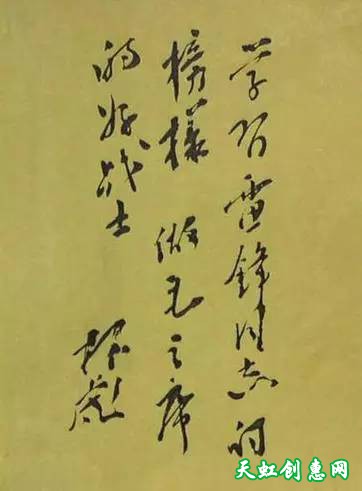 学习雷锋同志的
榜样 做毛主席
的好战士
林彪
天虹创惠网